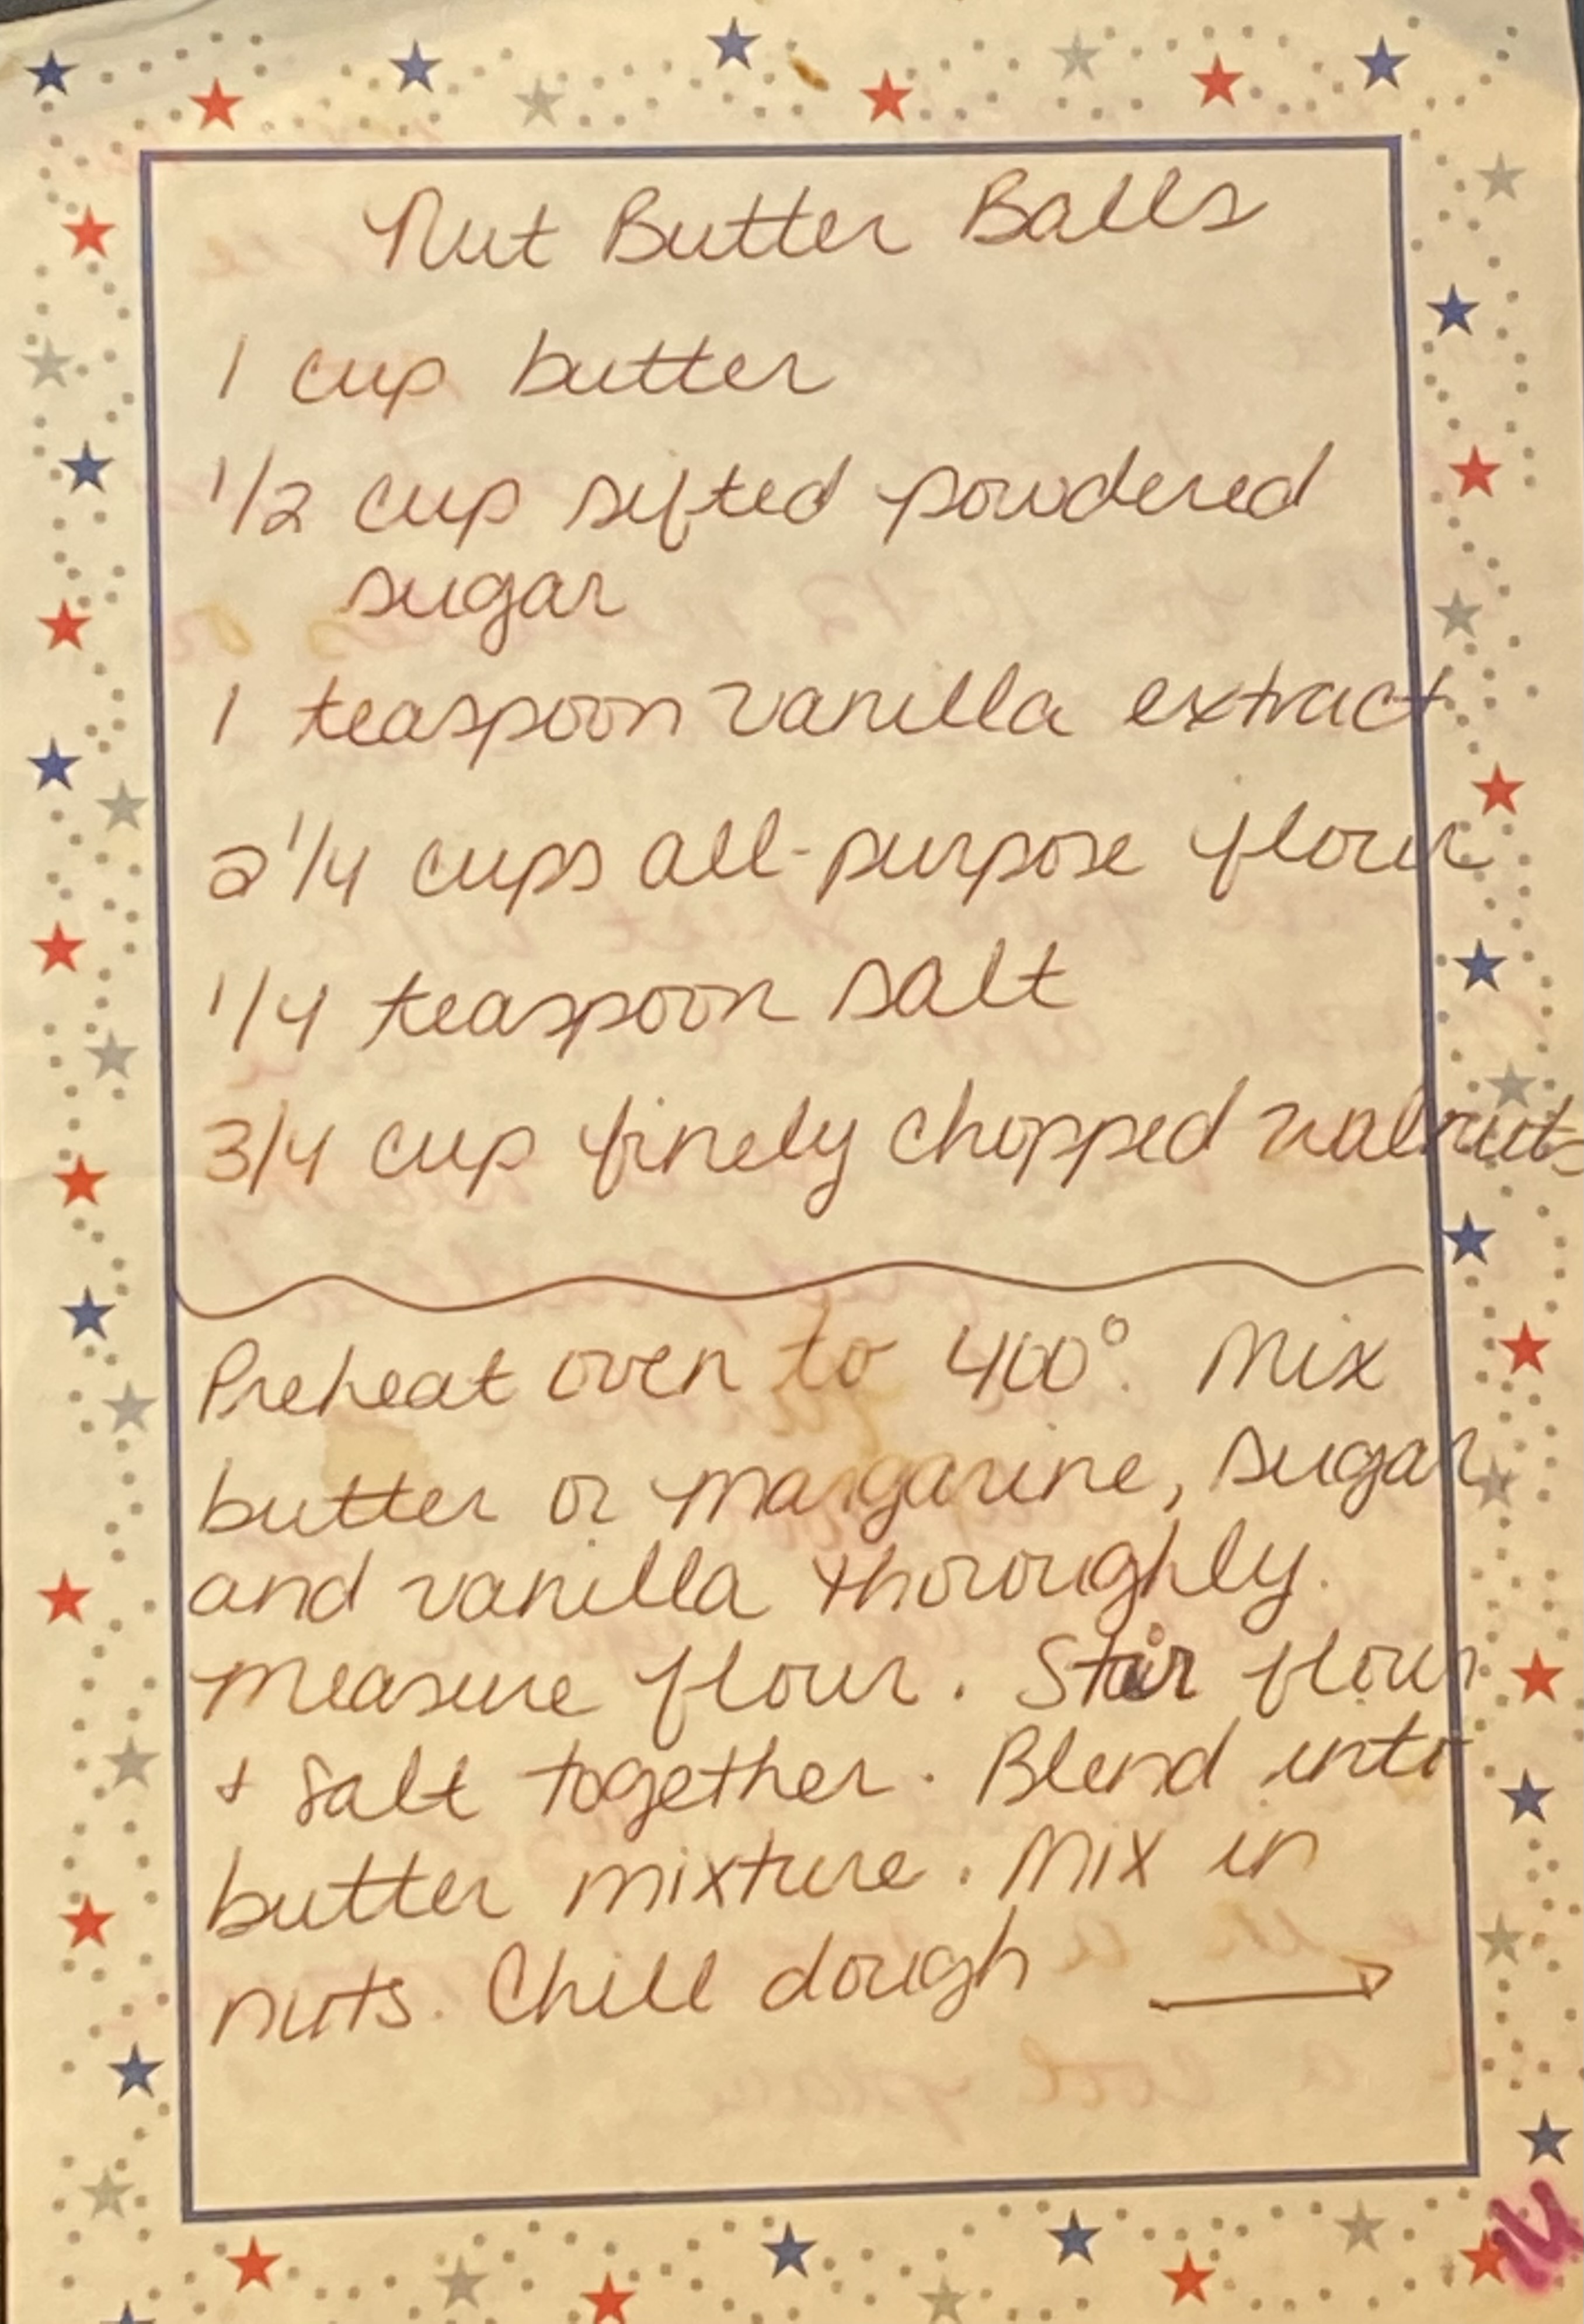 Nut Butter Balls
1 cup butter
1/2 cup sifted powdered
sugar
1 teaspoon vanilla extract
2 1/4 cups all-purpose flour
1/4 teaspoon salt
3/4 cup finely chopped walnuts
Preheat oven to 400°. Mix
butter or margarine, sugar
and vanilla thoroughly.
Measure flour. Stir flour
+ salt together. Blend into
butter mixture. Mix in
nuts. Chill dough →